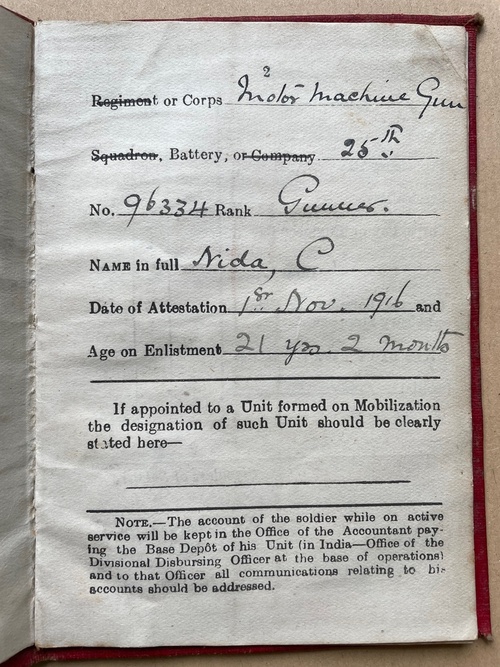 2
Regiment or Corps Motor Machine Gun
Squadron, Battery, or Company 25th
No. 96334 Rank Gunner.
NAME in full Nida, C
Date of Attestation 1st Nov. 1916 and
Age on Enlistment 21 yrs. 2 months
If appointed to a Unit formed on Mobilization
the designation of such Unit should be clearly
stated here—
NOTE.—The account of the soldier while on active
service will be kept in the Office of the Accountant pay-
ing the Base Depôt of his Unit (in India—Office of the
Divisional Disbursing Officer at the base of operations)
and to that Officer all communications relating to his
accounts should be addressed.